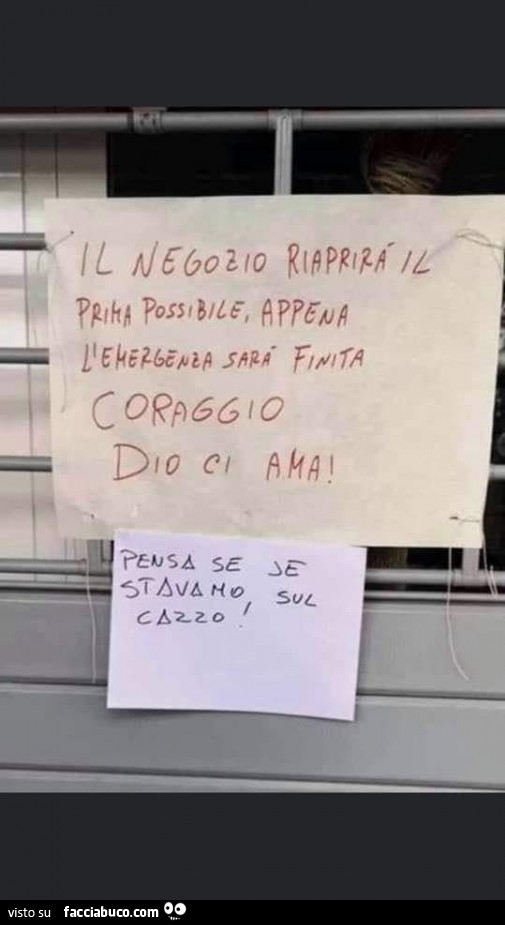 IL NEGOZIO RIAPRIRÀ IL
PRIMA POSSIBILE, APPENA
L'EMERGENZA SARÀ FINITA
CORAGGIO
DIO CI AMA!
PENSA SE JE
STAVAMO SUL
CAZZO!
visto su facciabuco.com